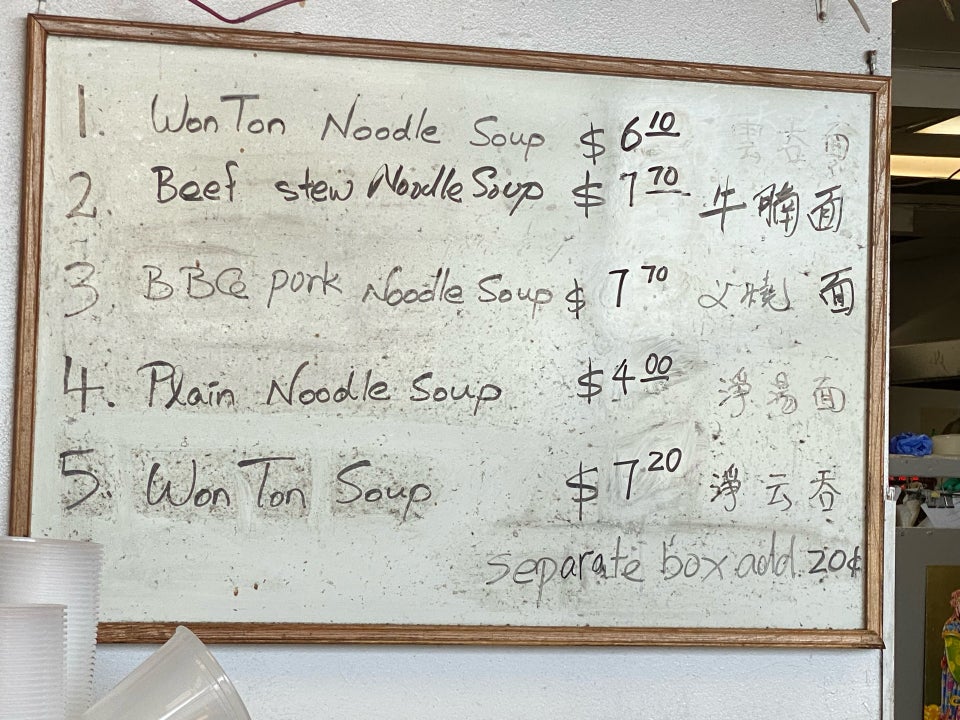 1. Won Ton Noodle Soup $6.10 雲吞面
2. Beef stew Noodle Soup $7.70 牛腩面
3 BBQ pork Noodle Soup $7.70 叉燒面
4. Plain Noodle Soup $4.00 淨湯面
5. Won Ton Soup $7.20 淨云吞
separate box add 20¢